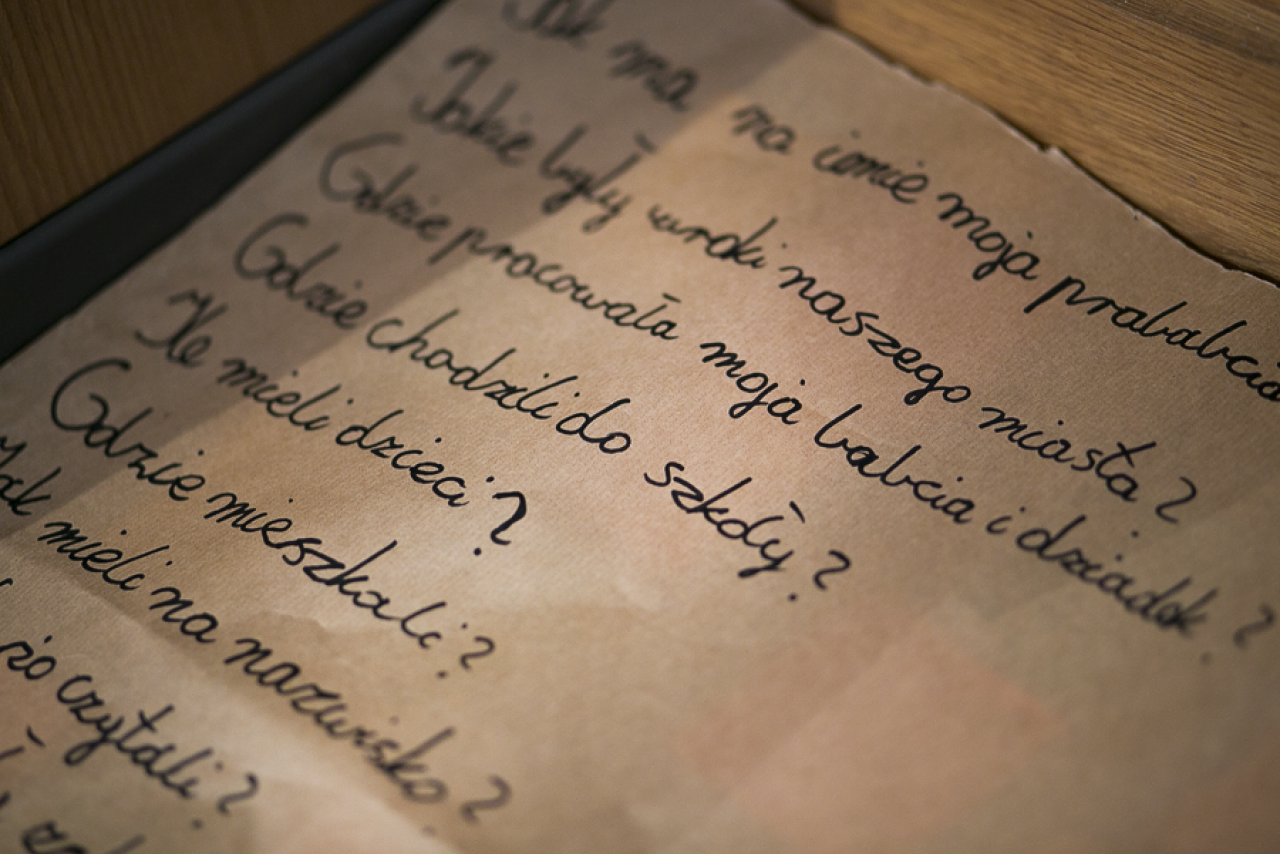 Jak ma na imię moja prababcia
Jakie były uroki naszego miasta?
Gdzie pracowała moja babcia i dziadek?
Gdzie chodzili do szkoły?
Ile mieli dzieci?
Gdzie mieszkali?
Jak mieli na nazwisko?
czytali?